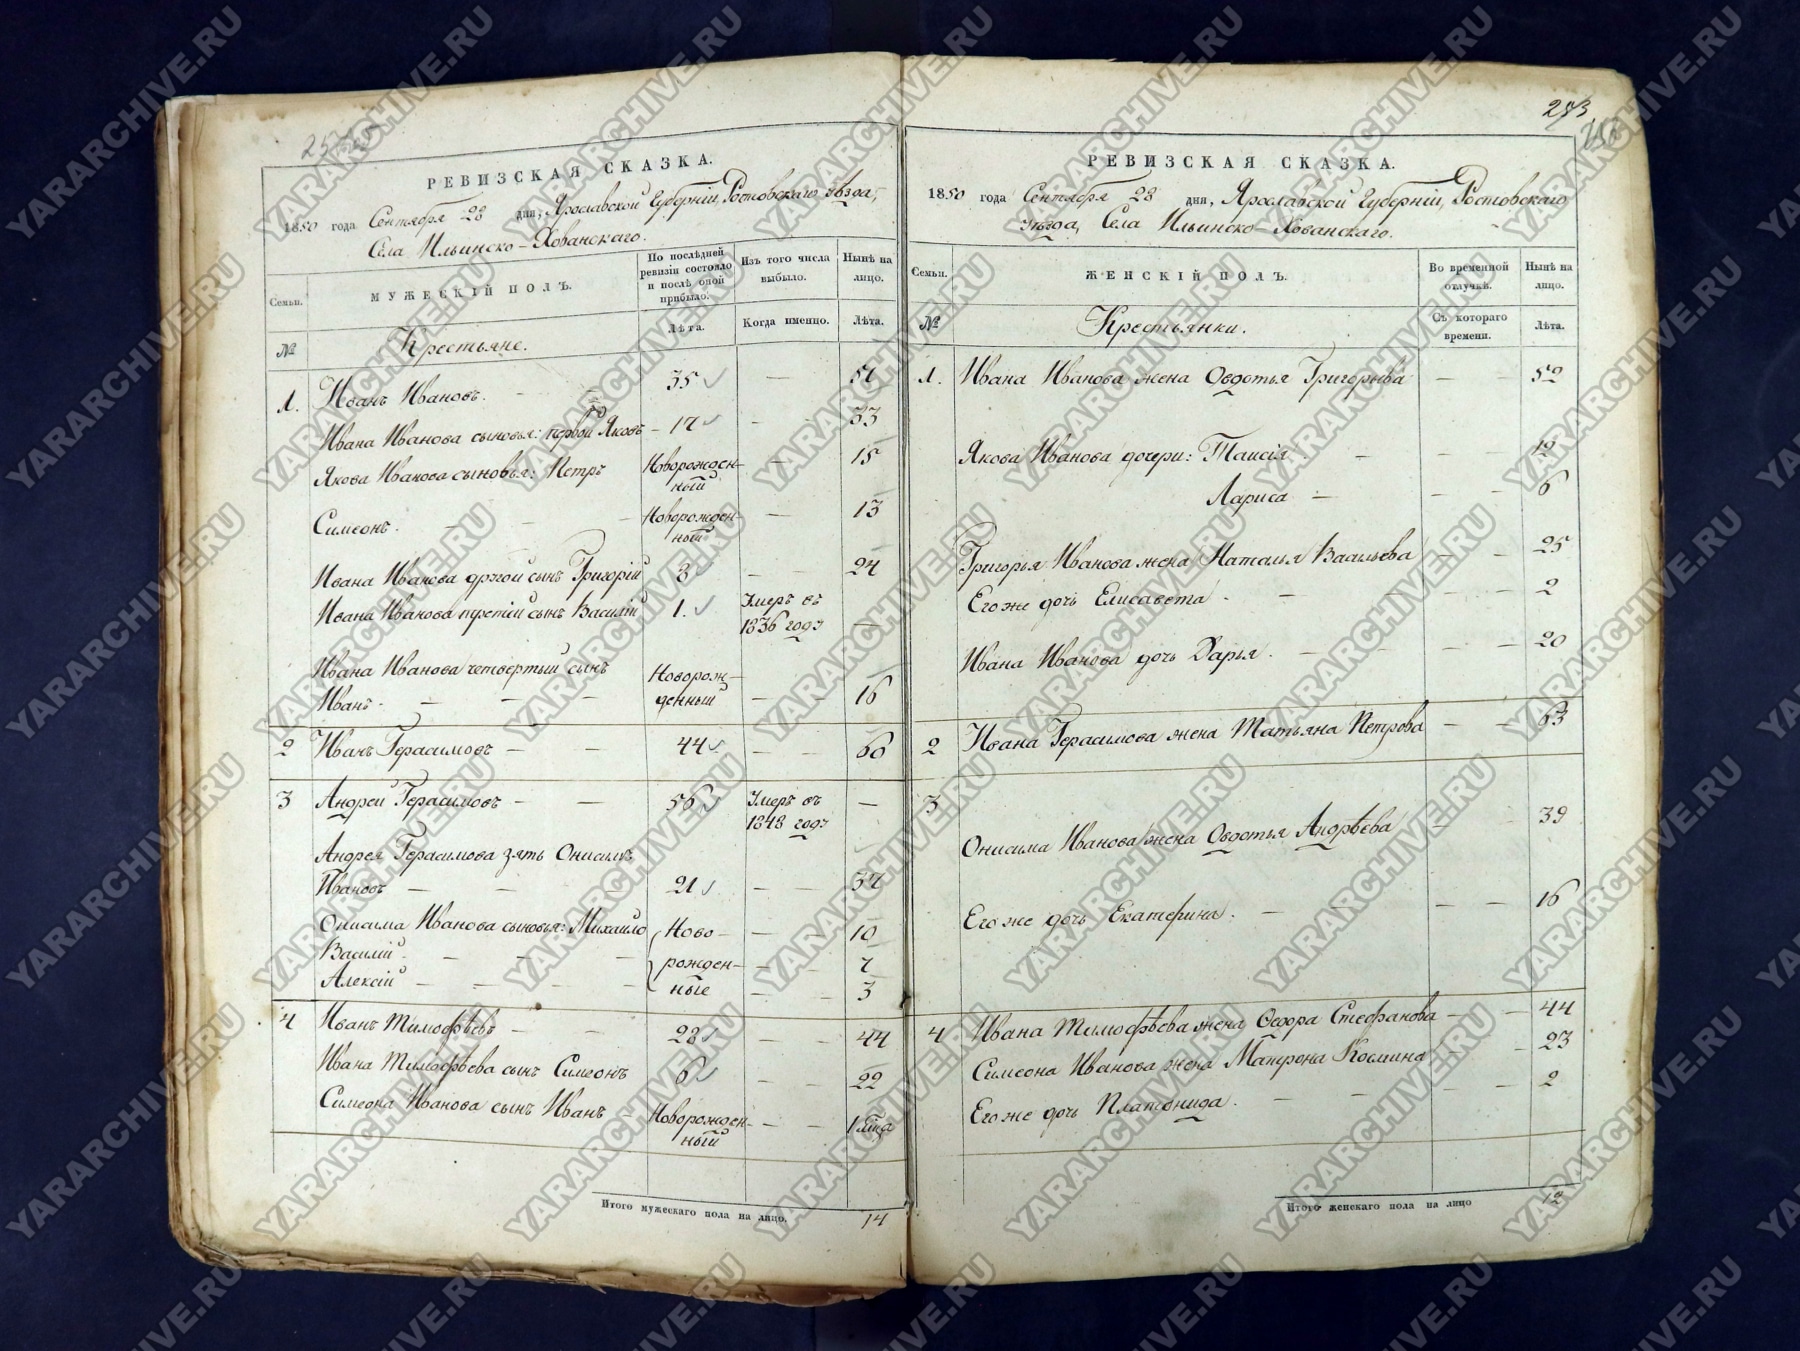 РЕВИЗСКАЯ СКАЗКА.
1850 года Сентября 28 дня, Ярославской Губерніи, Ростовскаго уѣзда,
Села Ильинско-Хованскаго.
Семьи. МУЖЕСКІЙ ПОЛЪ. По послѣдней ревизіи состояло и послѣ оной прибыло. Изъ того числа выбыло. Нынѣ на лицо.
№ Крестьяне. Лѣта. Когда именно. Лѣта.
1. Иванъ Ивановъ. — 35 — 51
Ивана Иванова сыновья: первой Яковъ — 17 — 33
Якова Иванова сыновья: Петръ Новорожден- — 15
ный
Симеонъ. — — — Новорожден- — 13
ный
Ивана Иванова другой сынъ Григорій 8 — — 24
Ивана Иванова третій сынъ Василій 1. Умеръ въ —
1836 году
Ивана Иванова четвертый сынъ Новорож-
Иванъ — — — денный — — 16
2 Иванъ Герасимовъ — — 44 — — 60
3 Андрей Герасимовъ — — 56 Умеръ въ —
1848 году
Андрея Герасимова зять Онисимъ
Ивановъ — — — 21 — — 37
Онисима Иванова сыновья: Михаило Ново- — — 10
Василій — — — рожден- — — 7
Алексій — — — — ные — — 3
4 Иванъ Тимофѣевъ — — 28 — — 44
Ивана Тимофѣева сынъ Симеонъ 6 — — 22
Симеона Иванова сынъ Иванъ Новорожден- — — 1
ный
Итого мужескаго пола на лицо. 14
283
РЕВИЗСКАЯ СКАЗКА.
1850 года Сентября 28 дня, Ярославской Губерніи, Ростовскаго
уѣзда, Села Ильинско-Хованскаго.
Семьи. ЖЕНСКІЙ ПОЛЪ. Во временной отлучкѣ. Нынѣ на лицо.
№ Крестьянки. Съ котораго времени. Лѣта.
1. Ивана Иванова жена Овдотья Григорьева — — 52
Якова Иванова дочери: Таисія — — — 12
Лариса — — — 6
Григорья Иванова жена Наталья Васильева — — 25
Его же дочь Елисавета. — — — 2
Ивана Иванова дочь Дарья. — — — — 20
2 Ивана Герасимова жена Татьяна Петрова — — 63
3
Онисима Иванова жена Овдотья Андрѣева — — 39
Его же дочь Екатерина. — — — — 16
4 Ивана Тимофѣева жена Ѳедора Стефанова — — 44
Симеона Иванова жена Матрона Космина — — 23
Его же дочь Платонида. — — — — 2
Итого женскаго пола на лицо 12
YARARCHIVE.RU